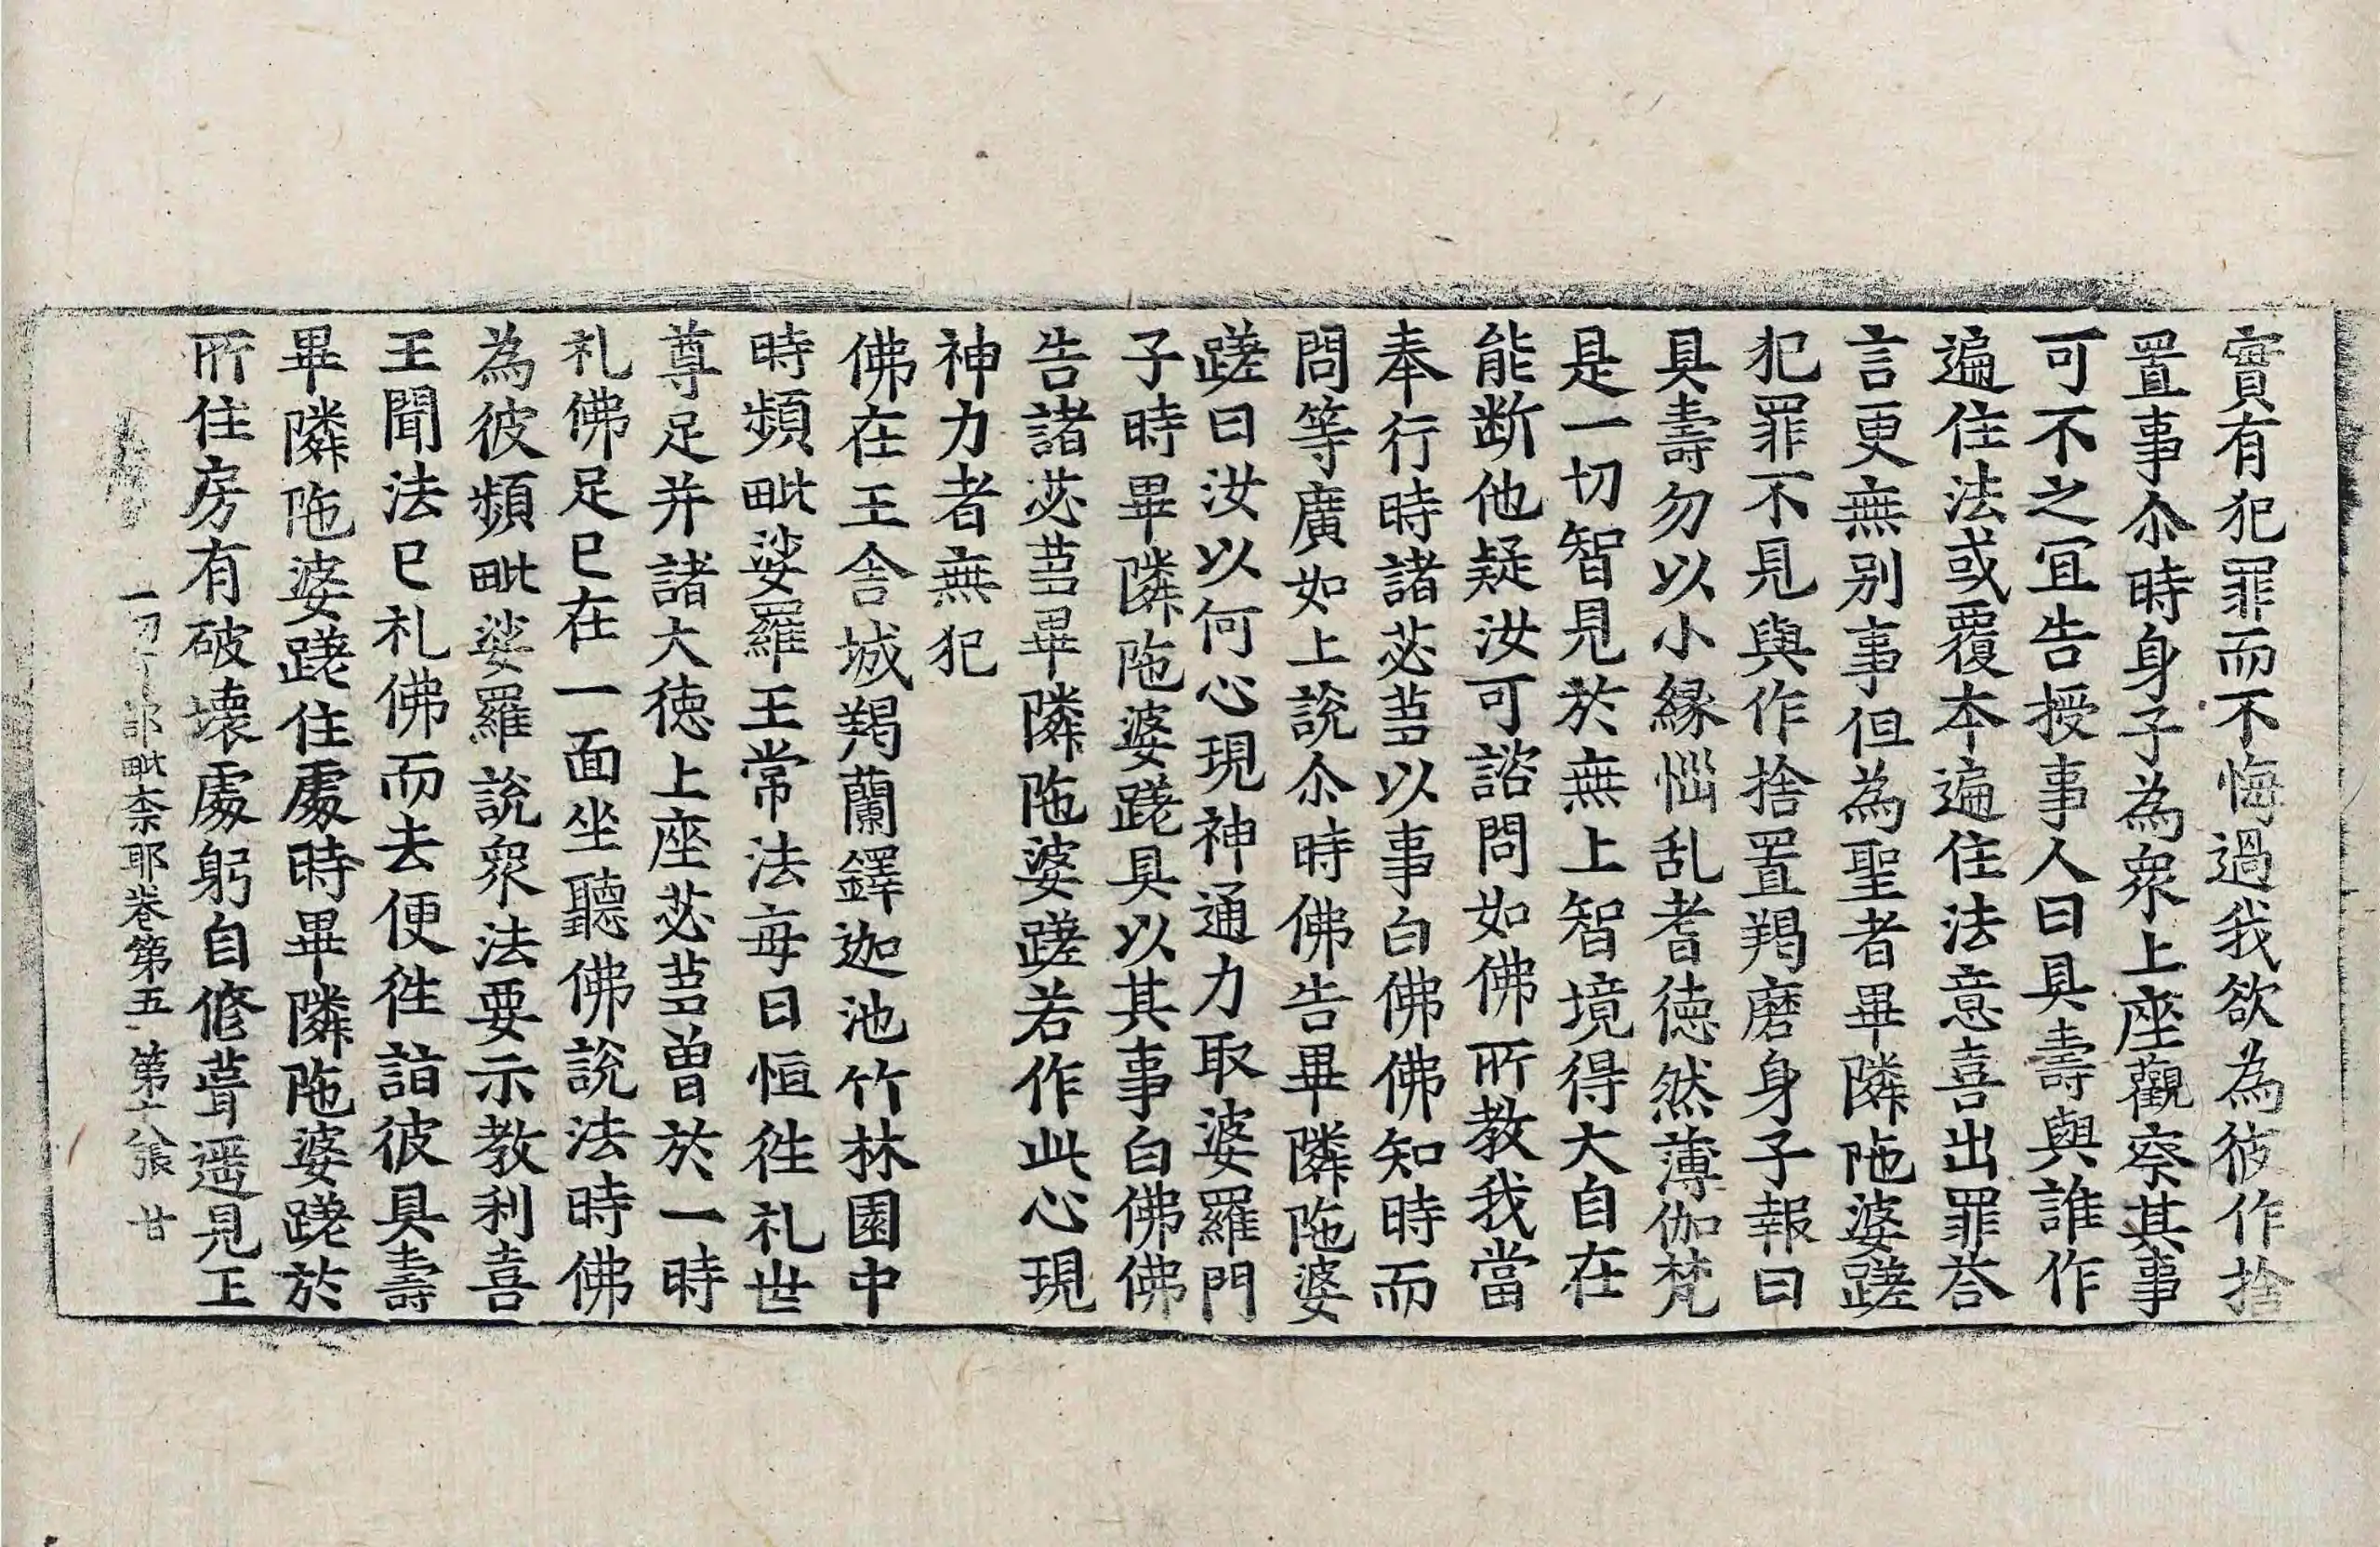 實有犯罪而不悔過我欲為彼作捨
置事尒時身子為衆上座觀察其事
可不之冝告授事人曰具壽與誰作
遍住法或覆本遍住法意喜出罪荅
言更無别事但為聖者畢隣陁婆蹉
犯罪不見與作捨置羯磨身子報曰
具壽勿以小緣惱乱耆徳然薄伽梵
是一切智見於無上智境得大自在
能断他疑汝可諮問如佛所教我當
奉行時諸苾蒭以事白佛佛知時而
問等廣如上說尒時佛告畢隣陁婆
蹉曰汝以何心現神通力取婆羅門
子時畢隣陁婆蹉具以其事白佛佛
告諸苾蒭畢隣陁婆蹉若作此心現
神力者無犯
佛在王舎城羯蘭鐸迦池竹林園中
時頻毗娑羅王常法每日恒徃礼世
尊足并諸大徳上座苾蒭曽於一時
礼佛足已在一面坐聽佛說法時佛
為彼頻毗娑羅說衆法要示教利喜
王聞法已礼佛而去便徃詣彼具壽
畢隣陁婆蹉住處時畢隣陁婆蹉於
所住房有破壊處躬自修葺遥見王
一切 部毗柰耶卷第五 第十八張 甘